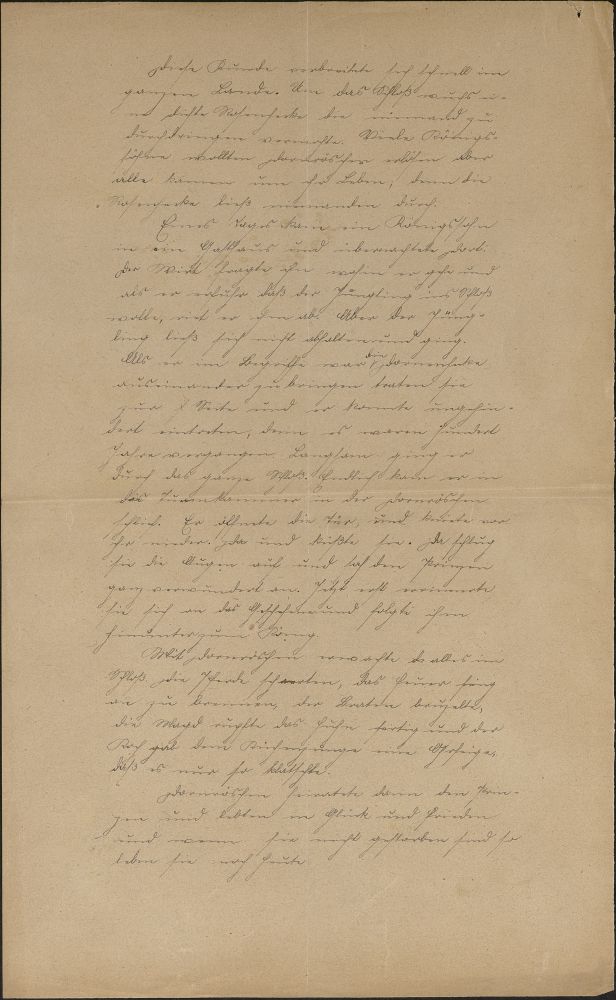 Diese Kunde verbreitete sich schnell im
ganzen Lande. Um das Schloß wuchs ei-
ne dichte Rosenhecke die niemand zu
durchdringen vermochte. Viele Königs-
söhne wollten Dornröschen erlösen aber
alle kamen um ihr Leben, denn die
Rosenhecke ließ niemanden durch.
Eines Tages kam ein Königssohn
in ein Gasthaus und übernachtete dort.
Der Wirt fragte ihn wohin er gehe und
als er erfuhr daß der Jüngling ins Schloß
wollte, riet er ihm ab. Aber der Jüng-
ling ließ sich nicht abhalten und ging.
Als er im Begriffe war die Dornenhecke
auseinander zu bringen traten sie
zur Seite und er konnte ungehin-
dert eintreten, denn es waren hundert
Jahre vergangen. Langsam ging er
durch das ganze Schloß. Endlich kam er in
das Turmkammer in der Dornröschen
schlief. Er öffnete die Tür, und kniete vor
ihr nieder. Da und küßte sie. Da schlug
sie die Augen auf und sah den Prinzen
ganz verwundert an. Jetzt erst erinnerte
sie sich an das Geschehene und folgte ihm
hinunter zum König.
Mit Dornröschen erwachte alles im
Schloß die Pferde scharrten, das Feuer fing
an zu brennen, der Braten bruzelte,
die Magd rupfte das Huhn fertig und der
Koch gab dem Küchenjunge eine Ohrfeige,
daß es nur so klatschte.
Dornröschen heiratete dann den Prin-
zen und lebten in Glück und Frieden
und wenn sie nicht gestorben sind so
leben sie noch heute